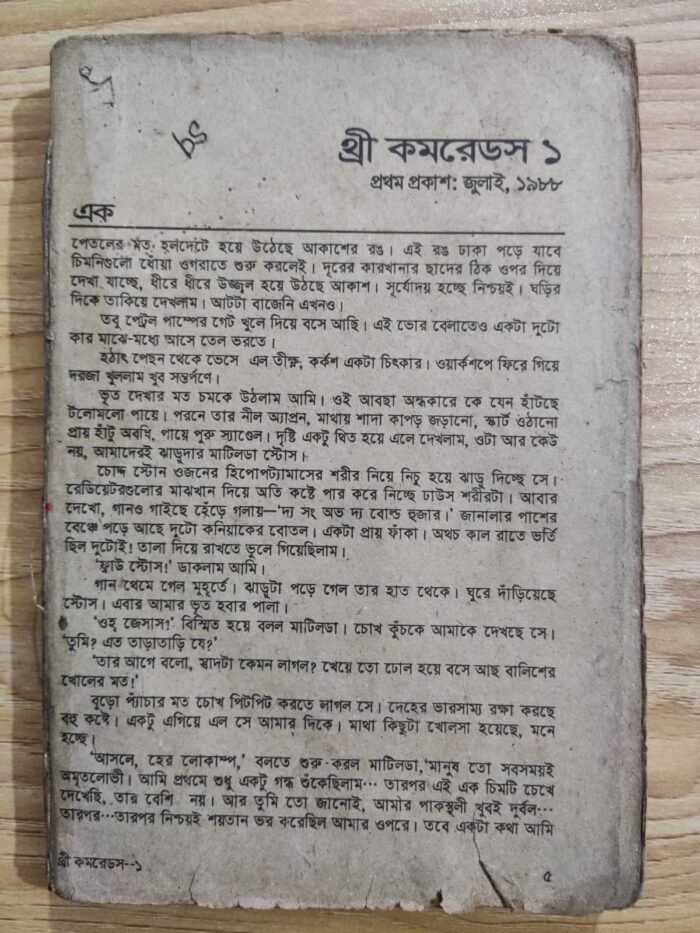 থ্রী কমরেডস ১
প্রথম প্রকাশ: জুলাই, ১৯৮৮
এক
পেতলের মত হলদেটে হয়ে উঠেছে আকাশের রঙ। এই রঙ ঢাকা পড়ে যাবে
চিমনিগুলো ধোঁয়া ওগরাতে শুরু করলেই। দূরের কারখানার ছাদের ঠিক ওপর দিয়ে
দেখা যাচ্ছে, ধীরে ধীরে উজ্জ্বল হয়ে উঠছে আকাশ। সূর্যোদয় হচ্ছে নিশ্চয়ই। ঘড়ির
দিকে তাকিয়ে দেখলাম। আটটা বাজেনি এখনও।
তবু পেট্রল পাম্পের গেট খুলে দিয়ে বসে আছি। এই ভোর বেলাতেও একটা দুটো
কার মাঝে-মধ্যে আসে তেল ভরতে।
হঠাৎ পেছন থেকে ভেসে এল তীক্ষ্ণ, কর্কশ একটা চিৎকার। ওয়ার্কশপে ফিরে গিয়ে
দরজা খুললাম খুব সন্তর্পণে।
ভূত দেখার মত চমকে উঠলাম আমি। ওই আবছা অন্ধকারে কে যেন হাঁটছে
টলোমলো পায়ে। পরনে তার নীল অ্যাপ্রন, মাথায় শাদা কাপড় জড়ানো, স্কার্ট ওঠানো
প্রায় হাঁটু অবধি, পায়ে পুরু স্যাণ্ডেল। দৃষ্টি একটু থিত হয়ে এলে দেখলাম, ওটা আর কেউ
নয়, আমাদেরই ঝাড়ুদার মাটিলডা স্টোস।
চোদ্দ স্টোন ওজনের হিপোপট্যামাসের শরীর নিয়ে নিচু হয়ে ঝাড়ু দিচ্ছে সে।
রেডিয়েটরগুলোর মাঝখান দিয়ে অতি কষ্টে পার করে নিচ্ছে ঢাউস শরীরটা। আবার
দেখো, গানও গাইছে হেঁড়ে গলায়—‘দ্য সং অভ দ্য বোল্ড হুজার।’ জানালার পাশের
বেঞ্চে পড়ে আছে দুটো কনিয়াকের বোতল। একটা প্রায় ফাঁকা। অথচ কাল রাতে ভর্তি
ছিল দুটোই! তালা দিয়ে রাখতে ভুলে গিয়েছিলাম।
‘ফ্রাউ স্টোস!’ ডাকলাম আমি।
গান থেমে গেল মুহূর্তে। ঝাড়ুটা পড়ে গেল তার হাত থেকে। ঘুরে দাঁড়িয়েছে
স্টোস। এবার আমার ভূত হবার পালা।
‘ওহ্ জেসাস!’ বিস্মিত হয়ে বলল মাটিলডা। চোখ কুঁচকে আমাকে দেখছে সে।
‘তুমি? এত তাড়াতাড়ি যে?’
‘তার আগে বলো, স্বাদটা কেমন লাগল? খেয়ে তো ঢোল হয়ে বসে আছ বালিশের
খোলের মত!’
বুড়ো প্যাঁচার মত চোখ পিটপিট করতে লাগল সে। দেহের ভারসাম্য রক্ষা করছে
বহু কষ্টে। একটু এগিয়ে এল সে আমার দিকে। মাথা কিছুটা খোলসা হয়েছে, মনে
হচ্ছে।
‘আসলে, হের লোকাম্প,’ বলতে শুরু করল মাটিলডা,‘মানুষ তো সবসময়ই
অমৃতলোভী। আমি প্রথমে শুধু একটু গন্ধ শুঁকেছিলাম··· তারপর এই এক চিমটি চেখে
দেখেছি, তার বেশি নয়। আর তুমি তো জানোই, আমার পাকস্থলী খুবই দুর্বল···
তারপর···তারপর নিশ্চয়ই শয়তান ভর করেছিল আমার ওপরে। তবে একটা কথা আমি
থ্রী কমরেডস--১
৫